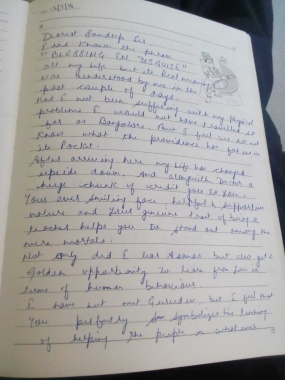 Dearest Sandeep Sir
I had known the phrase
"BLESSING IN DISGUISE"
all my life but its Real meaning
was understood by me in the
past couple of days.
Had I not been suffering with my physical
problems I would not have travelled so
far as Bangalore. But I feel we do not
know what the providence has got in
its Pocket.
After arriving here my life has changed
upside down. And although Doctor a
huge chunk of credit goes to you.
Your ever smiling face, helpful & supportive
nature and your genuine of being a
teacher helps you to stand out among the
mere mortals.
Not only did I but also got a
Golden opportunity to learn from you in
terms of human behaviour.
I have not met Gurudev but I feel that
You perfectly symbolizes his teaching
of helping the people in whatever